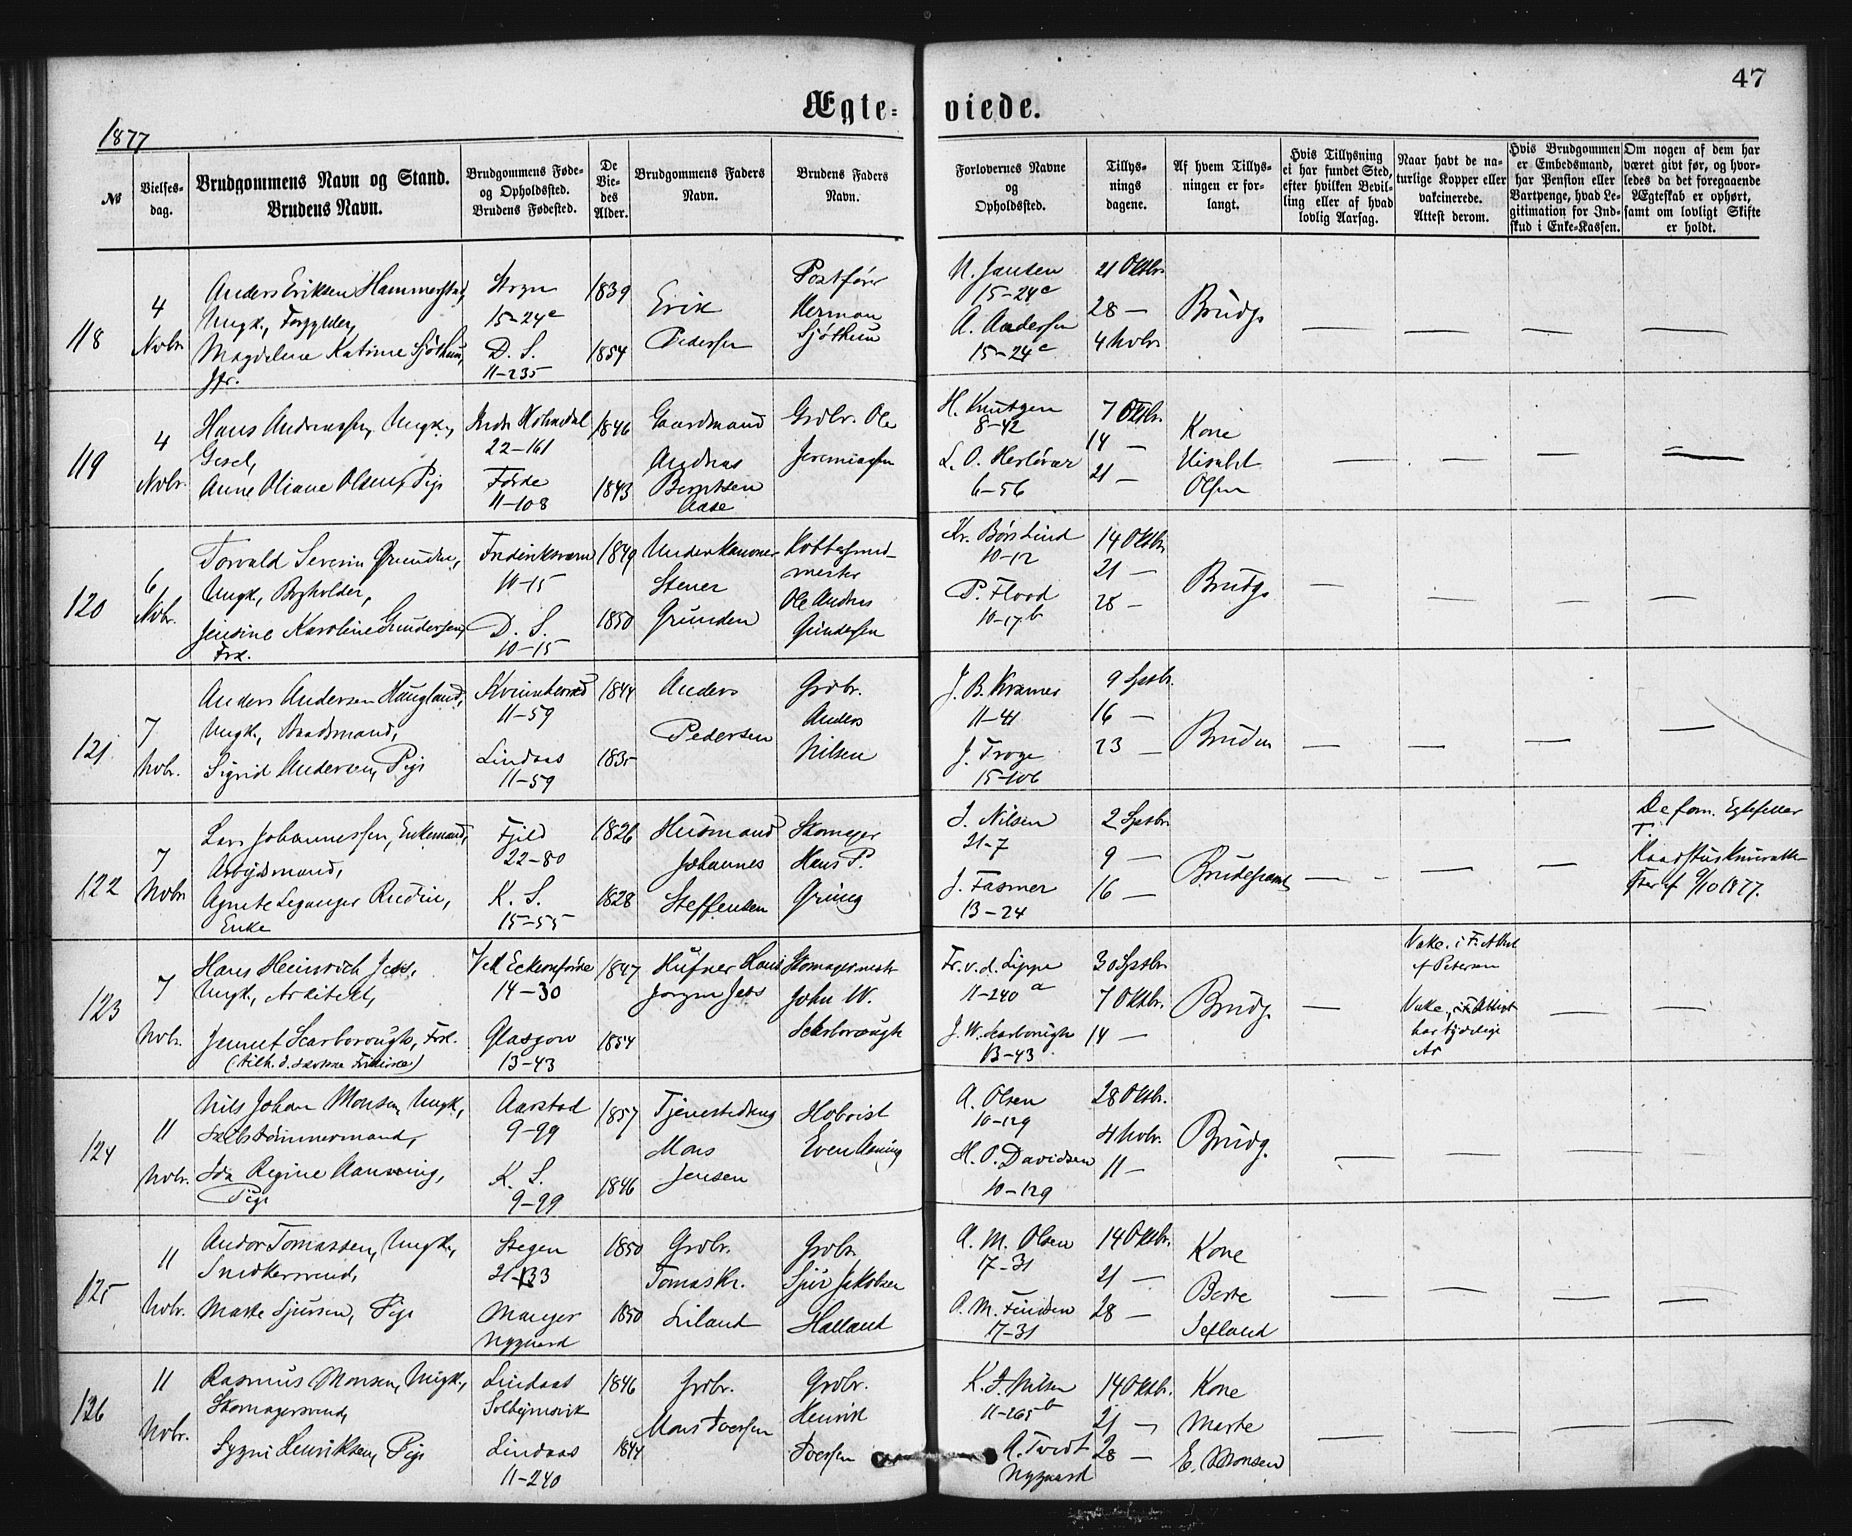 47
Ægte= viede.
1877
No
Vielses-
dag.
Brudgommens Navn og Stand.
Brudens Navn.
Brudgommens Føde-
og Opholdssted.
Brudens Fødested.
De
Vie-
des
Alder.
Brudgommens Faders
Navn.
Brudens Faders
Navn.
Forlovernes Navne
og
Opholdssted.
Tillys-
nings
dagene.
Af hvem Tillys-
ningen er for-
langt.
Hvis Tillysning
ei har fundet Sted,
efter hvilken Bevil-
ling eller af hvad
lovlig Aarsag.
Naar havt de na-
turlige Kopper eller
vakcinerede.
Attest derom.
Hvis Brudgommen
er Embedsmand,
har Pension eller
Vartpenge, hvad Le-
gitimation for Ind-
skud i Enke-Kassen.
Om nogen af dem har
været givt før, og hvor-
ledes da det foregaaende
Ægteskab er ophørt,
samt om lovligt Skifte
er holdt.
118
4
Novbr
Anders Eriksen Hammerstad,
Ungk., Forgylder,
Magdelene Katrine Sjøthun,
Jfr.
Stryn
15-24c
D. S.
11-235
1839
1854
Erik
Pedersen
Postfører
Herman
Sjøthun
N. Jansen
15-24c
A. Andersen
15-24c
21 Oktbr
28 —
4 Novbr
Brudg.
119
4
Novbr.
Hans Andreassen, Ungk.,
Gesel,
Anne Oliane Olsen, Pige
22-161
Førde
11-108
1846
1843
Gaardmand
Andreas
Berntsen
Aase
Grdbr. Ole
Jeremiassen
H. Knutsen
8-42
L. O. Herløvær
6-56
7 Oktbr.
14 —
21 —
Kone
Elisabet
Olsen
120
6
Novbr.
Torvald Severin Grunden,
Ungk., Bogholder,
Jensine Karoline Gundersen,
Frk.
Frideriksværn
10-15
D. S.
10-15
1849
1850
Underkanoner
Stener
Grunden
Kobbersmed-
mester
Ole Andreas
Gundersen
Kr. Børslind
10-12
P. Flood
10-17b
14 Oktbr.
21 —
28 —
Brudg.
121
7
Novbr.
Anders Andersen Haugland,
Ungk., Baadsmand,
Sigrid Andersen, Pige
Kvinnherred
11-59
Lindaas
11-59
1844
1835
Anders
Pedersen
Grdbr.
Anders
Nilsen
J. B. Kramer
11-41
J. Troye
15-106
9 Septbr.
16 —
23 —
Bruden
122
7
Novbr
Lars Johannessen, Enkemand,
Arbeidsmand,
Agnete Leganger Rudin,
Enke
Fjeld
22-80
K. S.
15-55
1826
1828
Husmand
Johannes
Steffensen
Skomager
Hans P.
Gruing
J. Nilsen
21-7
J. Fasmer
13-24
2 Septbr
9 —
16 —
Brudefolkene
De forn. Egtefeller
9/10 1877.
123
7
Novbr.
Hans Heinrich Jess,
Ungk., Arkitekt,
Jennet Scarborough, Frk.
Ved Eckernførde
14-30
Glasgow
13-43
1847
1854
Hufner Hans
Jørgen Jess
Skomagermestr
John W.
Scarborough
Fr. v. d. Lippe
11-240a
J. W. Scarborough
13-43
30 Septbr.
7 Oktbr.
14 —
Brudg.
Vakc. i F. Attest
af Petersen
124
11
Novbr.
Nils Johan Monsen, Ungk.,
Skibstømmermand,
Ida Regine Aanning,
Pige
Aarstad
9-99
K. S.
9-99
1857
1846
Tjenestedreng
Mons
Jensen
Hoboist
Even Aaning
A. Olsen
10-129
H. O. Davidsen
10-129
28 Oktbr.
4 Novbr.
11 —
Brudg.
125
11
Novbr.
Andor Tomassen, Ungk.,
Snedkersvend,
Marte Sjursen, Pige
Stegen
21-33
Manger
Nygaard
1850
1850
Grdbr.
Tomas Kr.
Liland
Grdbr.
Sjur Jakobsen
Halland
A. M. Olsen
17-31
O. M. Knudsen
17-31
14 Oktbr.
21 —
28 —
Kone
Berte
Sefland
126
11
Novbr.
Rasmus Monsen, Ungk.,
Skomagersvend,
Sygni Henriksen, Pige
Lindaas
Solheimsvik
Lindaas
11-240
1846
1844
Grdbr.
Mons Iversen
Grdbr.
Henrik
Iversen
K. J. Nilsen
11-265b
A. Tvedt
Nygaard
14 Oktbr.
21 —
28 —
Kone
Marte
E. Monsen